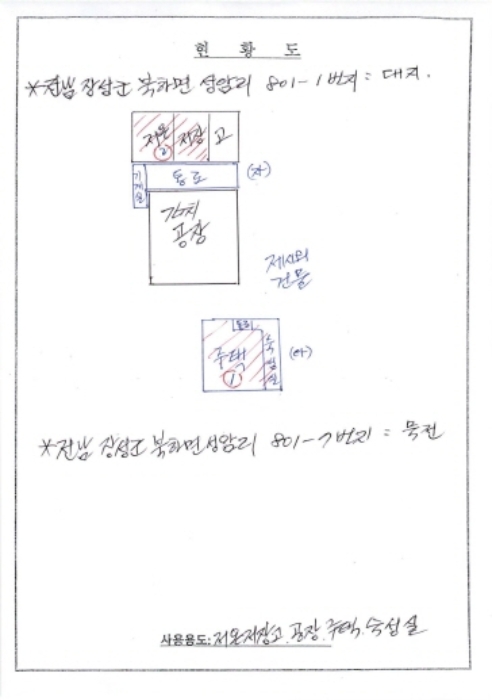 현 황 도
*전남 장성군 북하면 성암리 801-1번지 = 대지.
저온 저장 고
2
기계실
통로
(자)
김치
공장
제시외
건물
통로
주택
1
숙성실
(아)
*전남 장성군 북하면 성암리 801-7번지 = 묵전
사용용도: 저온저장고. 공장. 주택. 숙성실